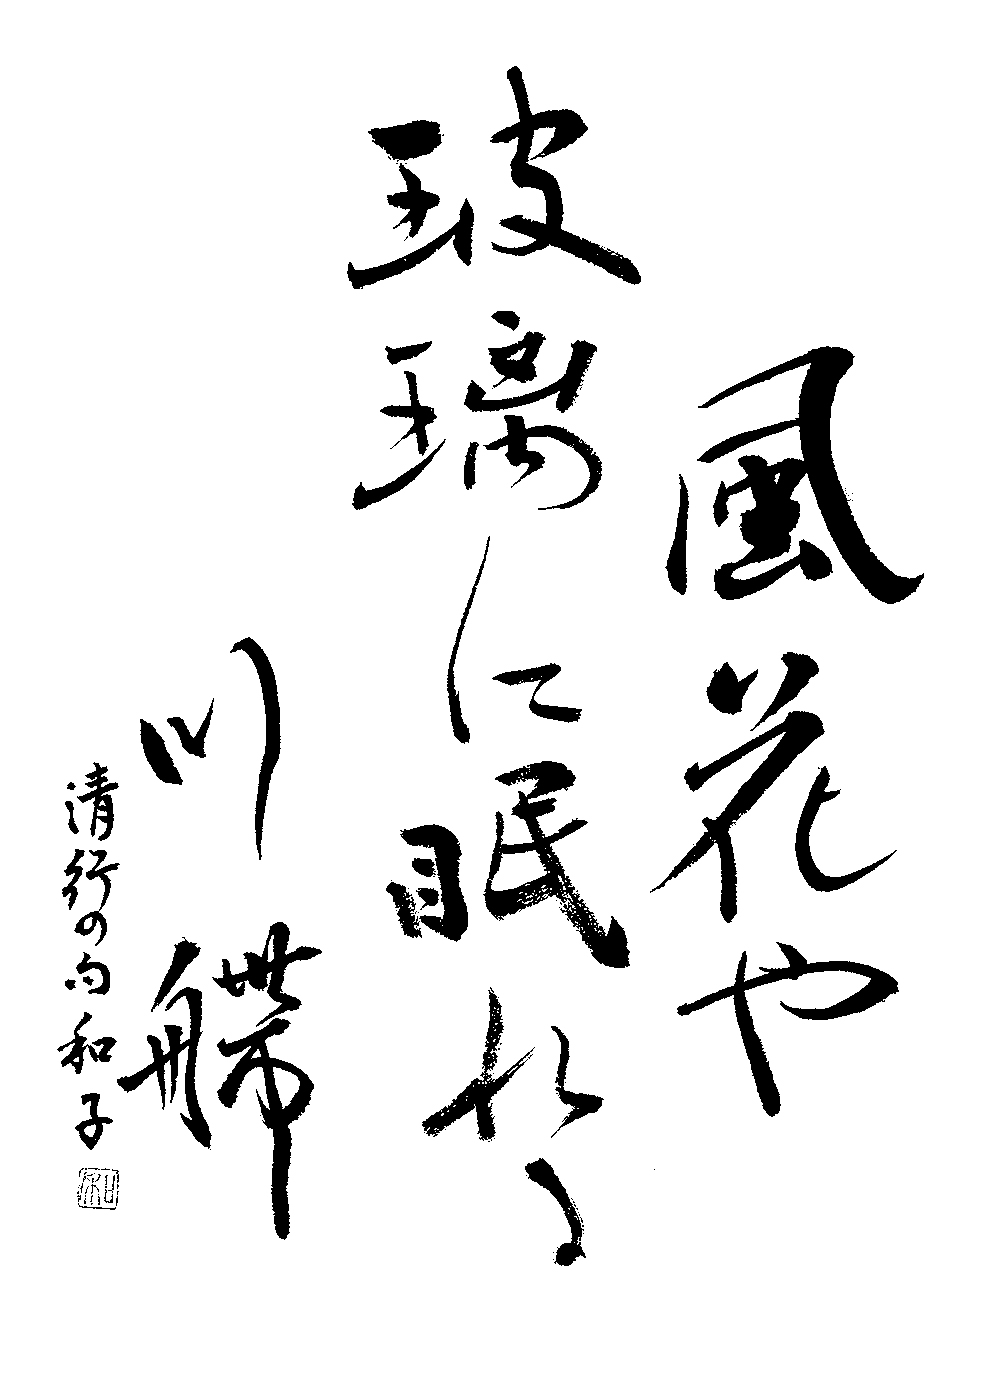 風花や
玻璃に眠れる
川艜
清行の句 和子
和